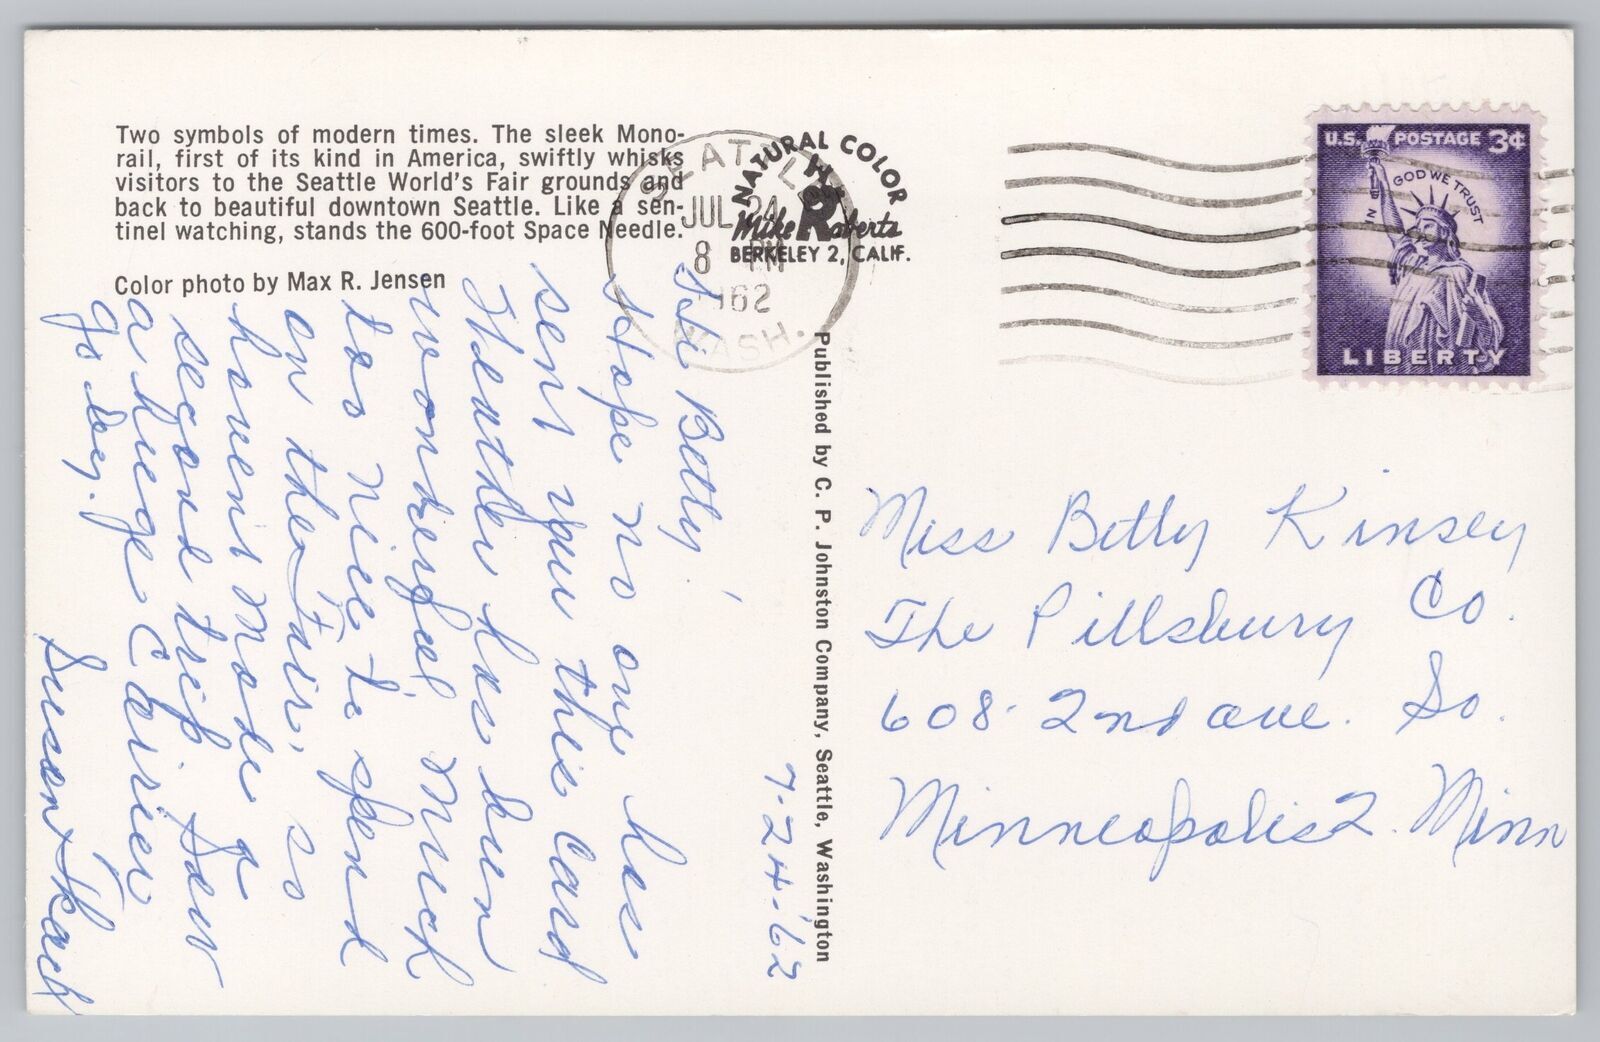 Two symbols of modern times. The sleek Mono-
rail, first of its kind in America, swiftly whisks
visitors to the Seattle World's Fair grounds and
back to beautiful downtown Seattle. Like a sen-
tinel watching, stands the 600-foot Space Needle.
Color photo by Max R. Jensen
SEATTLE
JUL 24
8 PM
1962
WASH.
NATURAL COLOR
Mike Roberts
BERKELEY 2, CALIF.
U.S. POSTAGE 3¢
IN GOD WE TRUST
LIBERTY
Published by C. P. Johnston Company, Seattle, Washington
7-24-'62
Hi Betty,
Hope no one has
sent you this card
Weather has been
wonderful much
too nice to spend
on the Fair, so
haven't made a
second trip. Saw
a huge Carrier
go by.
Susan
Miss Betty Kinsey
The Pillsbury Co.
608-2nd ave. So.
Minneapolis 2. Minn